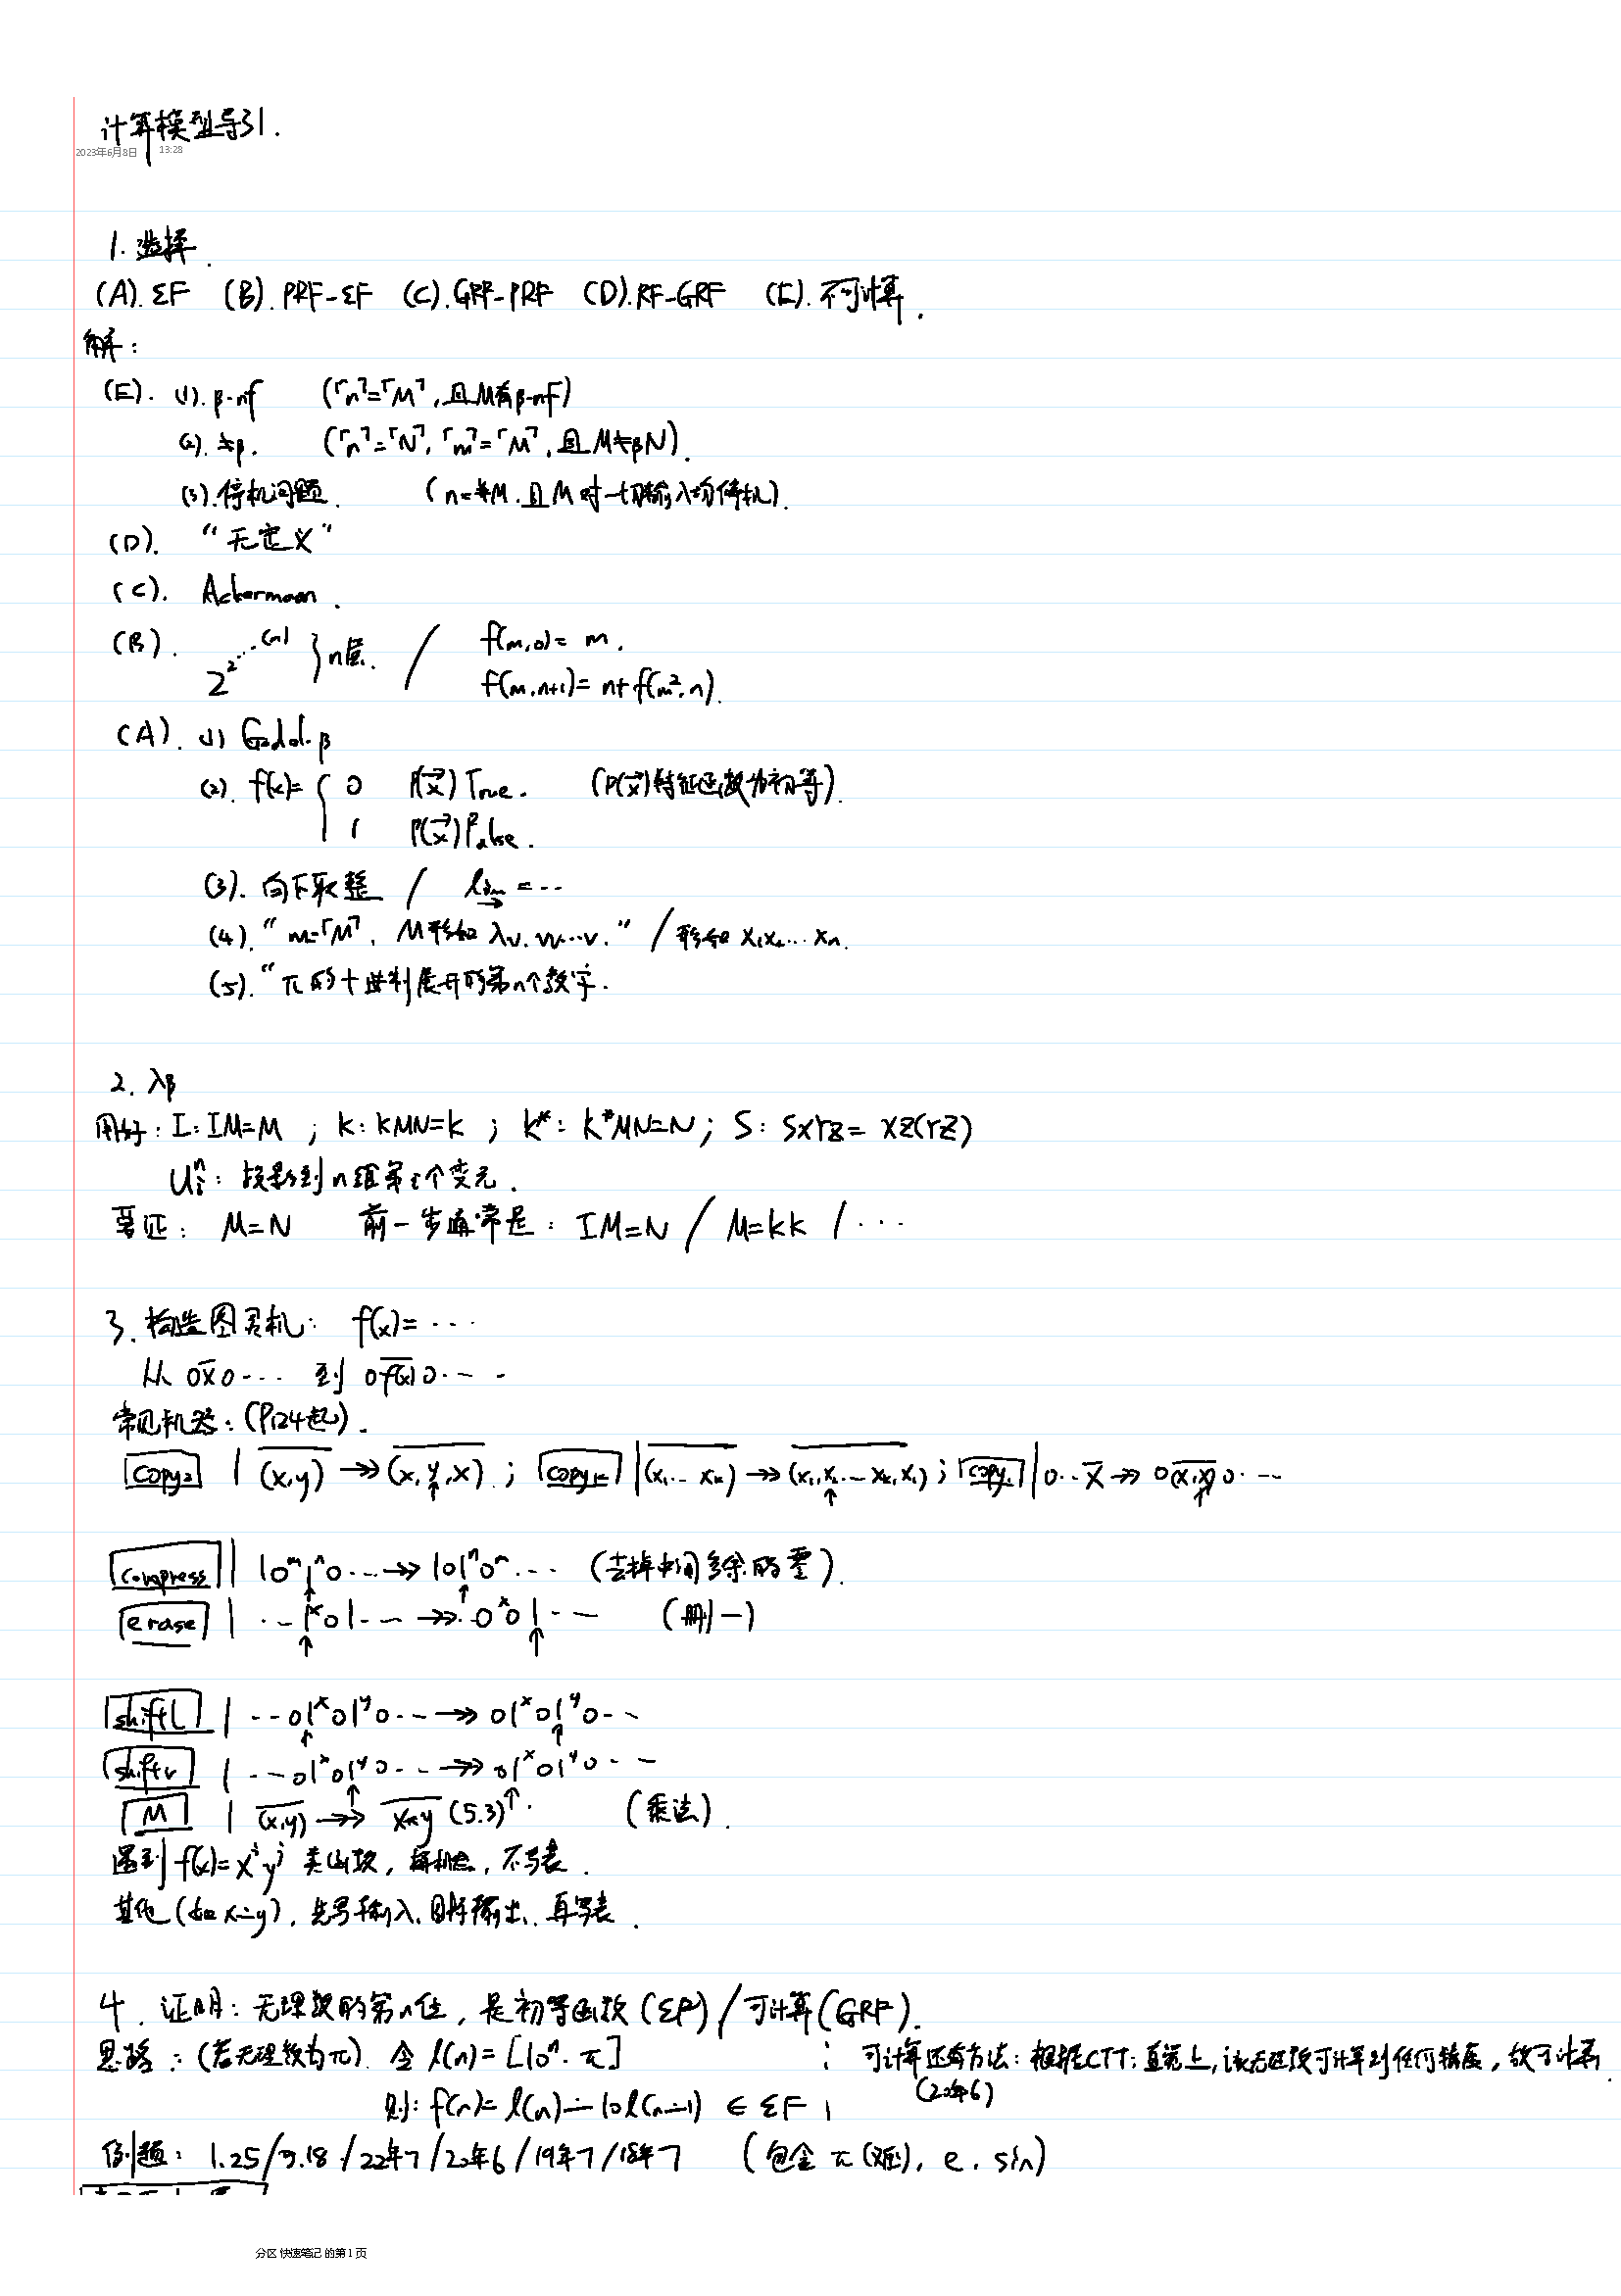 计算模型导引.
2023年6月8日 13:28
1. 选择.
(A). εF (B). PRF-εF (C). GRF-PRF (D). RF-GRF (E). 不可计算.
解:
(E). (1). β-nf (「n┐=「M┐, 且M有β-nf)
(2). ≠β. (「n┐=「N┐, 「m┐=「M┐, 且M≠βN).
(3). 停机问题. (n=#M. 且M对一切输入均停机).
(D). “无定义”
(C). Ackermann.
(B). 2^2^⋰^(n) }n层. / f(m,0)= m.
f(m,n+1)= n+f(m²,n).
(A). (1) Godel-β
(2). f(x)= { 0 P(x⃗) True. (P(x⃗)特征函数为初等).
1 P(x⃗) False.
(3). 向下取整 / lim = ...
(4). “m=「M┐, M形如 λv.vv...v.” / 形如 x₁x₂...xₙ.
(5). “π的十进制展开的第n个数字.
2. λβ
用好: I: IM=M ; K: KMN=K ; K*: K*MN=N ; S: SXYZ= XZ(YZ)
Uᵢⁿ: 投影到n组第i个变元.
要证: M=N 前一步通常是: IM=N / M=KK / ...
3. 构造图灵机: f(x)= ...
从 0x̄0... 到 0f(x)0...
常见机器: (P124起).
copy₂ | (x,y) →→ (x,y,x) ; copyₖ | (x₁...xₖ) →→ (x₁,x₂...xₖ,x₁) ; copy₁ | 0..x̄ →→ 0(x,x)0...
compress | 10ᵐ1ⁿ0... →→ 101ⁿ0ᵐ... (去掉中间多余的零).
erase | ...1ˣ01... →→ ..0ˣ01... (删一)
shiftl | ...01ˣ01ʸ0... →→ 01ˣ01ʸ0...
shiftr | ...01ˣ01ʸ0... →→ 01ˣ01ʸ0...
M | (x,y) →→ x×y (5.3). (乘法).
遇到 f(x)=xⁱyʲ 类函数, 不写表.
其他 (如 x∸y), 先写输入, 目标输出, 再写表.
4. 证明: 无理数的第n位, 是初等函数 (εF) / 可计算 (GRF).
思路: (若无理数为π). 令 l(n)= [10ⁿ·π] ; 可计算还有方法: 根据CTT: 直觉上, 该无理数可计算到任何精度, 故可计算.
(20年6)
则: f(n)= l(n)∸10l(n∸1) ∈ εF ;
例题: 1.25/3.18/22年7/20年6/19年7/18年7 (包含 π(难), e, sin)
分区 快速笔记 的第 1 页